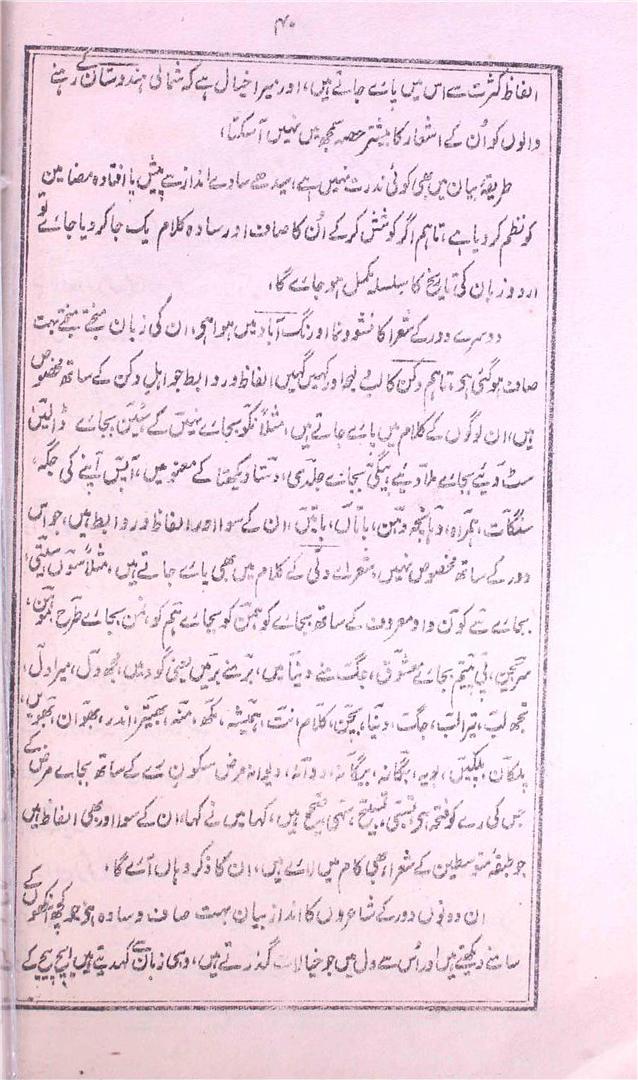 ۴۰
الفاظ کثرت سے اس میں پائے جاتے ہیں، اور میرا خیال ہے کہ شمالی ہندوستان کے رہنے
والوں کو اُن کے اشعار کا بیشتر حصہ سمجھ میں نہیں آسکتا،
طریقۂ بیان میں بھی کوئی ندرت نہیں ہے، سیدھے سادے انداز سے پیش پا افتادہ مضامین
کو نظم کر دیا ہے، تاہم اگر کوشش کرکے اُن کا صاف اور سادہ کلام یک جا کر دیا جائے تو
اردو زبان کی تاریخ کا سلسلہ مکمل ہو جائے گا،
دوسرے دور کے شعرا کا نشو و نما اورنگ آباد میں ہوا ہی، ان کی زبان منجتے منجتے بہت
صاف ہوگئی ہی، تاہم دکن کا لب و لہجہ اور کہیں کہیں الفاظ و روابط جو اہلِ دکن کے ساتھ مخصوص
ہیں، ان لوگوں کے کلام میں پائے جاتے ہیں، مثلاً نکو بجائے نہیں کے بجائے
سٹ دینے بجائے بیگی بجائے جلدی، دستا دیکھتا کے معنوں میں، آپس اپنے کی جگہ،
سنگات، ہمراہ، ان کے سوا اور الفاظ و روابط ہیں، جو اس
دور کے ساتھ مخصوص نہیں، شعرائے دلی کے کلام میں بھی پائے جاتے ہیں، مثلاً سوں سیتی،
بجائے سے کوں واو معروف کے ساتھ بجائے کو ہمن کو بجائے ہم کو، نمن بجائے طرح
سریجن، پی پیتم بجائے معشوق، جگ منے دنیا میں، بر منے بر میں یعنی گود میں، مجھ دل، میرا دل،
تجھ لب، تیرا لب، جگ، دنیا، بچن، کلام نت، ہمیشہ، مکھ، منہ، بھیتر، اندر، بھواں، بھویں،
پلکاں، پلکیں، بگانہ، بیگانہ، دوانہ، دیوانہ مرض سکونِ رے کے ساتھ بجائے مرض کے
جس کی رے کو فتحہ ہی تسبی، تسبیح، صحی صحیح ہیں، کہا میں نے کہا، ان کے سوا اور بھی الفاظ ہیں
جو طبقۂ متوسطین کے شعرا، بھی کلام میں لائے ہیں، ان کا ذکر وہاں آئے گا،
ان دونوں دور کے شاعروں کا انداز بیان بہت صاف و سادہ ہی جو کچھ آنکھوں کے
سامنے دیکھتے ہیں اور اُس سے دل میں جو خیالات گذرتے ہیں، وہی زبان سے کہدیتے ہیں ایچ پیچ کے